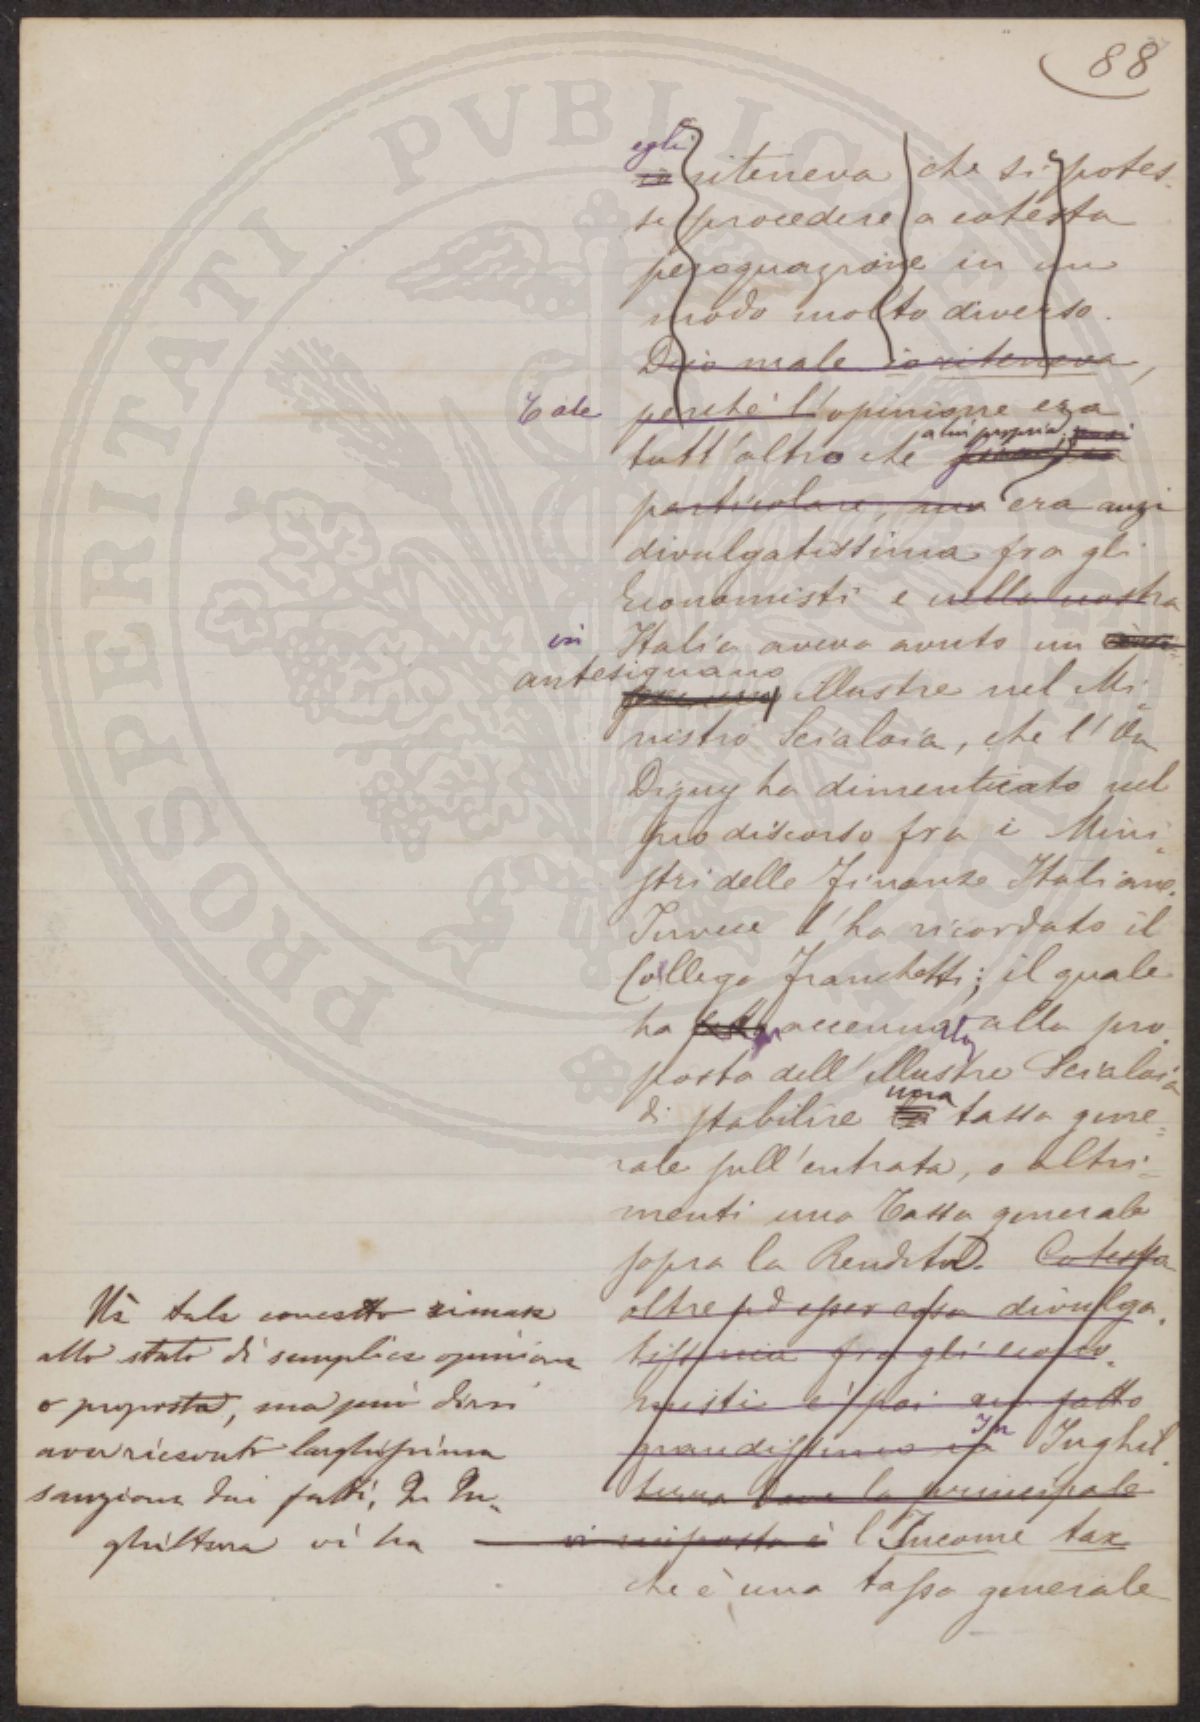 88
egli
io riteneva che si potes-
se procedere a cotesta
perequazione in un
modo molto diverso.
Dico male io riteneva,
Tale perché l'opinione era
a lui propria,
tutt'altro che
particolare, ma era anzi
divulgatissima fra gli
Economisti e nella nostra
in Italia aveva avuto un
antesignano
illustre nel Mi-
nistro Scialoia, che l'On
Digny ha dimenticato nel
suo discorso fra i Mini-
stri delle Finanze Italiane.
Invece l'ha ricordato il
Collega Franchetti; il quale
ha accennato alla pro-
posta dell'illustre Scialoia
una
di stabilire la tassa gene-
rale sull'entrata, o altri-
menti una Tassa generale
sopra la Rendita. Cotesta
oltre ad esser essa divulga-
tissima fra gli econo-
misti è poi un fatto
In
grandissimo in Inghil-
terra dove la principale
imposta è l'Income tax
che è una tassa generale
Nè tale concetto rimase
allo stato di semplice opinione
o proposta, ma può dirsi
aver ricevuto larghissima
sanzione dai fatti. In In-
ghilterra vi ha
PROSPERITATI PVBLICAE